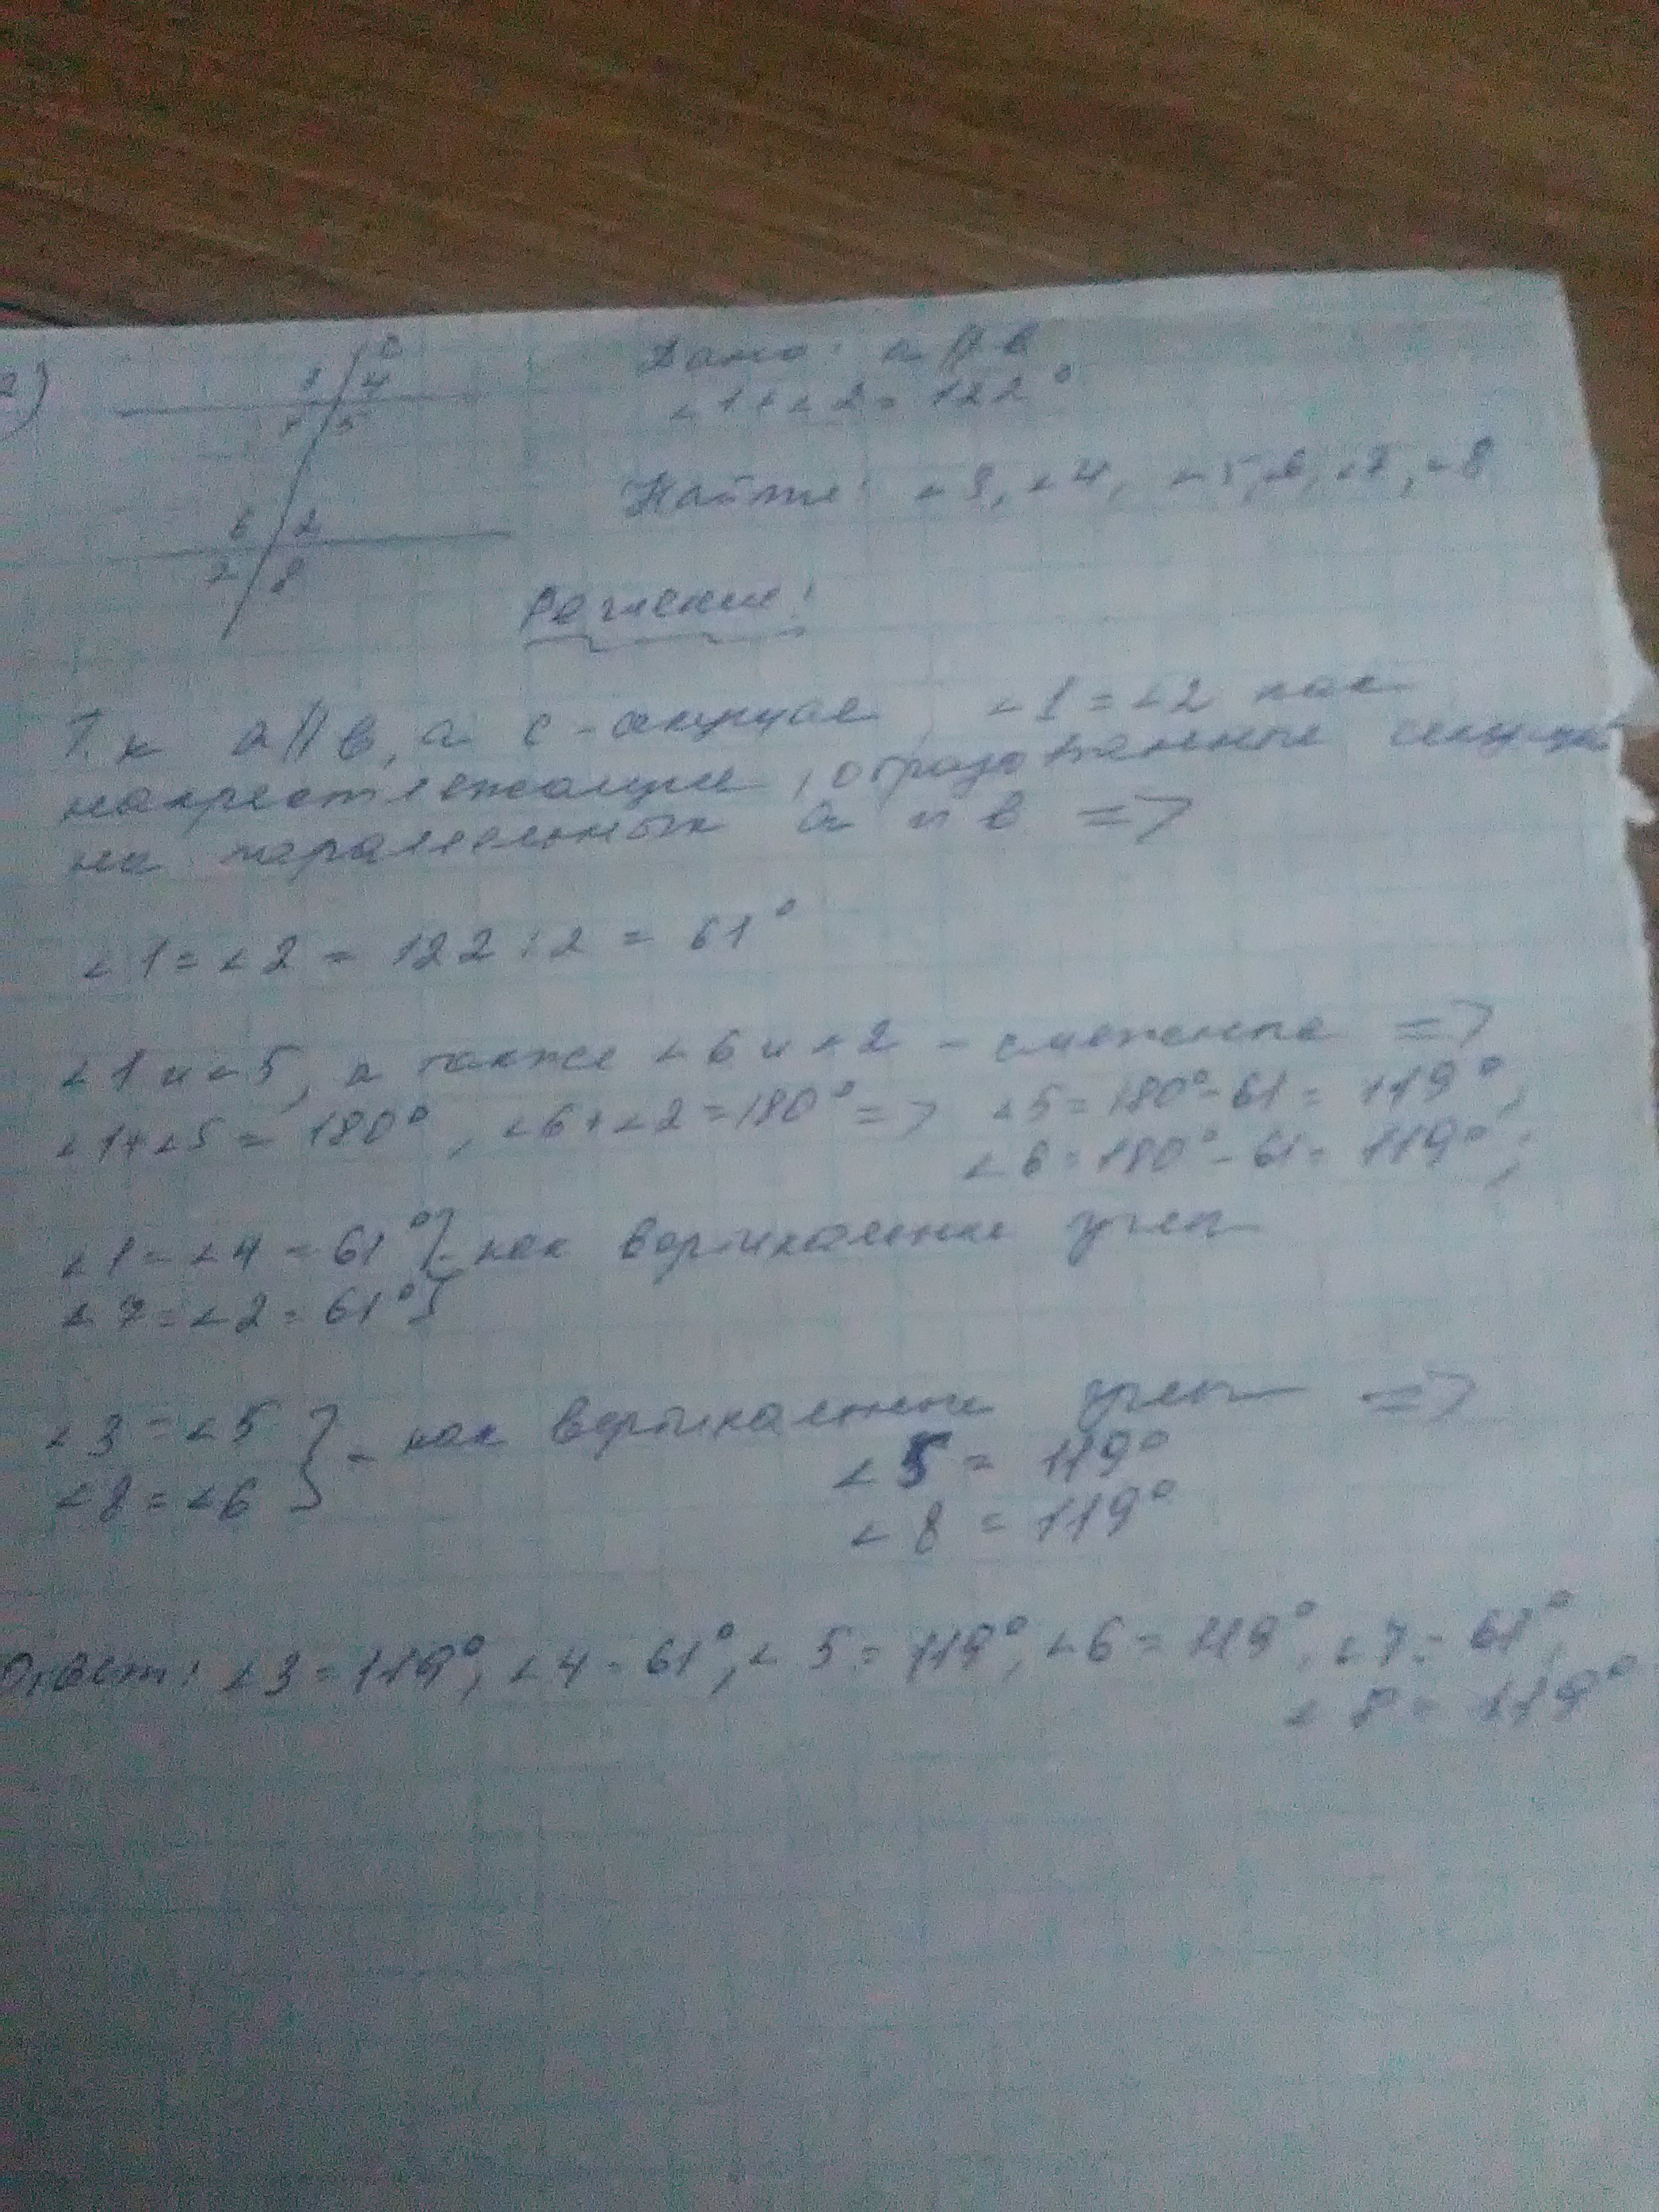 2)
c
3 4
1 5
6 2
7 8
Дано: a || в
∠1+∠2=122°
Найти: ∠3, ∠4, ∠5, ∠6, ∠7, ∠8
Решение:
Т.к a||в, а c-секущая, ∠1=∠2 как
накрест лежащие, образованные
на параллельных a и в =>
∠1=∠2 = 122:2 = 61°
∠1 и ∠5, а также ∠6 и ∠2 - смежные =>
∠1+∠5 = 180°, ∠6+∠2=180° => ∠5=180°-61= 119°,
∠6=180°-61= 119°;
∠1=∠4=61° } - как вертикальные углы
∠7=∠2=61° }
∠3=∠5 } - как вертикальные углы =>
∠8=∠6 }
∠5= 119°
∠8 = 119°
Ответ: ∠3=119°, ∠4=61°, ∠5=119°, ∠6=119°, ∠7=61°,
∠8= 119°